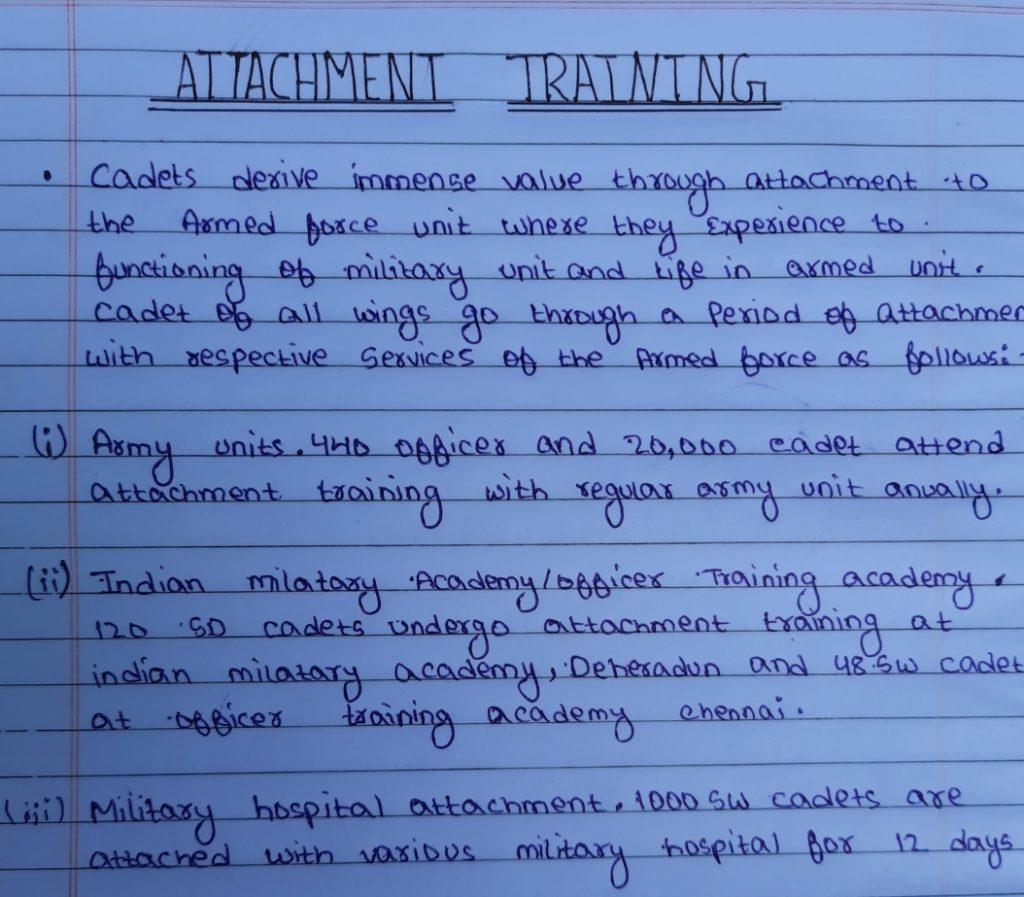 ATTACHMENT TRAINING
• Cadets derive immense value through attachment to
the Armed force unit where they Experience to
functioning of military unit and life in armed unit.
cadet of all wings go through a Period of attachmen
with respective Services of the Armed force as follows:-
(i) Army units. 440 officer and 20,000 cadet attend
attachment training with regular army unit anually.
(ii) Indian milatary Academy/officer Training academy.
120 SD cadets undergo attachment training at
indian milatary academy, Deheradun and 48 SW cadet
at officer training academy chennai.
(iii) Military hospital attachment. 1000 SW cadets are
attached with various military hospital for 12 days